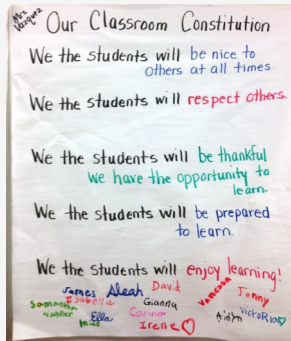 Mrs
Vazquez
Our Classroom Constitution
We the students will be nice to
others at all times.
We the students will respect others.
We the students will be thankful
we have the opportunity to
learn.
We the students will be prepared
to learn.
We the students will enjoy learning!
James Aleah David
Isabella Gianna Vanessa Jenny
Samantha
Ella Carina Aidyn Victoria
Irene